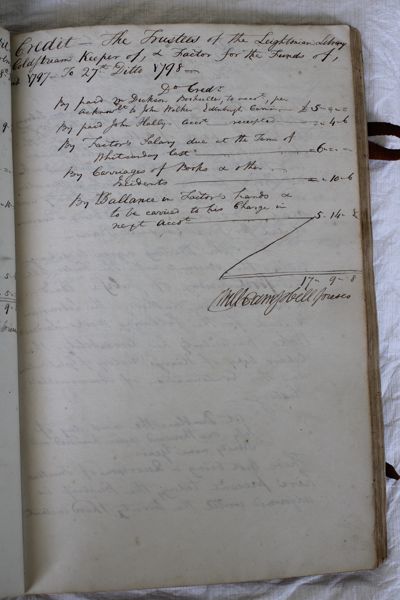 Credit — The Trustees of the Leightonian Library
Coldstream Keeper of, & Factor for the Funds of,
1797 — To 27th Ditto 1798 —
Do Credr
By paid Dickson, Bookseller, to accot, per
to John Walker Edinburgh £ 5 " = " =
By paid John accot receipted " = 4 " 6
By Factor's Salary due at the Term of
Whitsunday last — " 6 " = " =
By Carriages of Books & other
Incidents — " = " 10 " 6
By Ballance in Factor's hands &
to be carried to his Charge in
next Accot — 5 " 14 " 8
17 " 9 " 8
Will Campbell Preses